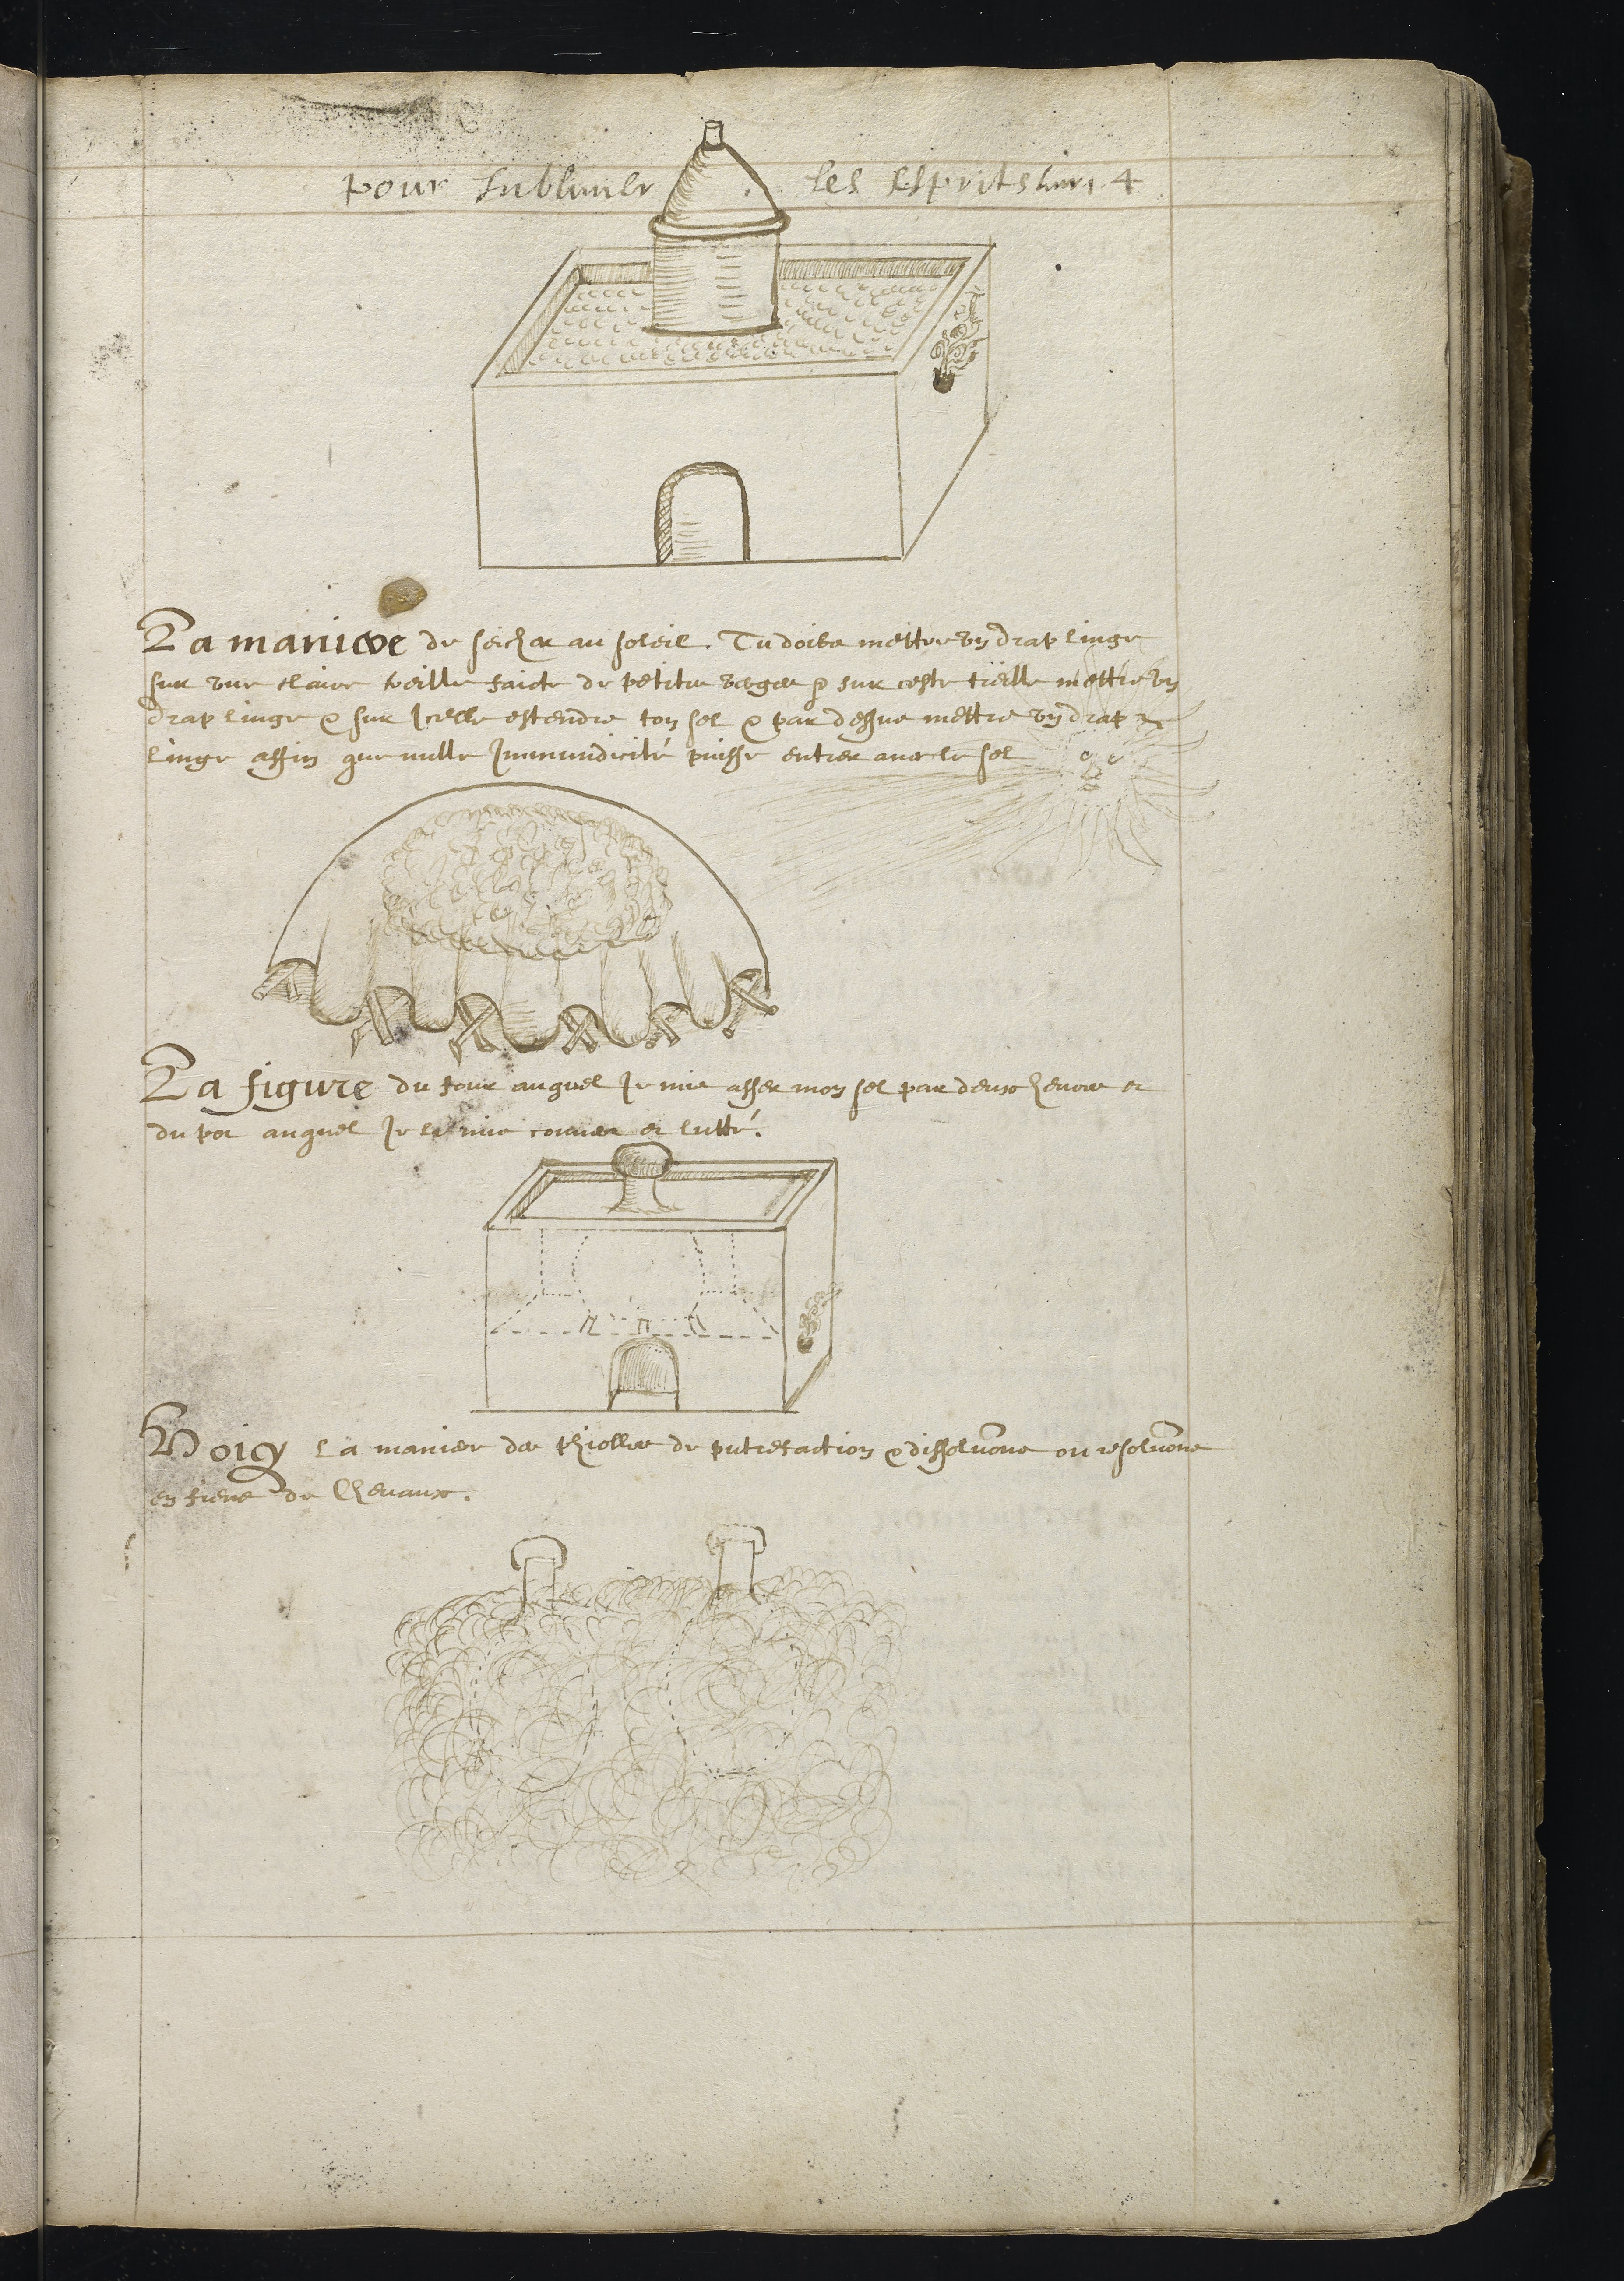 pour sublimer les espritz 4
La maniere de seicher au soleil. Tu doibs mettre vn drap linge
sur vne claire voeille faicte de petites verges & sur ceste tieille mettre vn
drap linge & sur Jcelle estendre ton sel & par dessus mettre vn drap
linge affin que nulle Jmmundicité puisse entrer auec le sel
La figure du four auquel Je mis asser mon sel par deux heures et
du pot auquel Je le mis couuer et lutté.
Voicy la manier des phiolles de putrefaction & dissolutions ou resolutions
en fiens de Cheuaux.